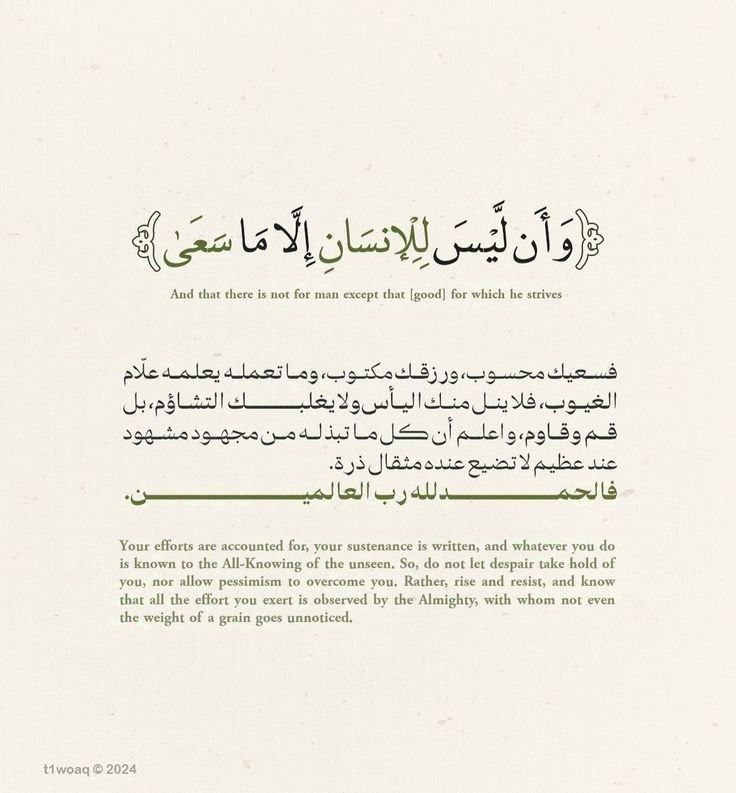 ﴿وَأَن لَّيْسَ لِلْإِنسَانِ إِلَّا مَا سَعَىٰ﴾
And that there is not for man except that [good] for which he strives
فسعيك محسوب، ورزقك مكتوب، وما تعمله يعلمه علّام
الغيوب، فلا ينل منك اليأس ولا يغلبك التشاؤم، بل
قم وقاوم، واعلم أن كل ما تبذله من مجهود مشهود
عند عظيم لا تضيع عنده مثقال ذرة.
فالحمد لله رب العالمين.
Your efforts are accounted for, your sustenance is written, and whatever you do
is known to the All-Knowing of the unseen. So, do not let despair take hold of
you, nor allow pessimism to overcome you. Rather, rise and resist, and know
that all the effort you exert is observed by the Almighty, with whom not even
the weight of a grain goes unnoticed.
t1woaq © 2024